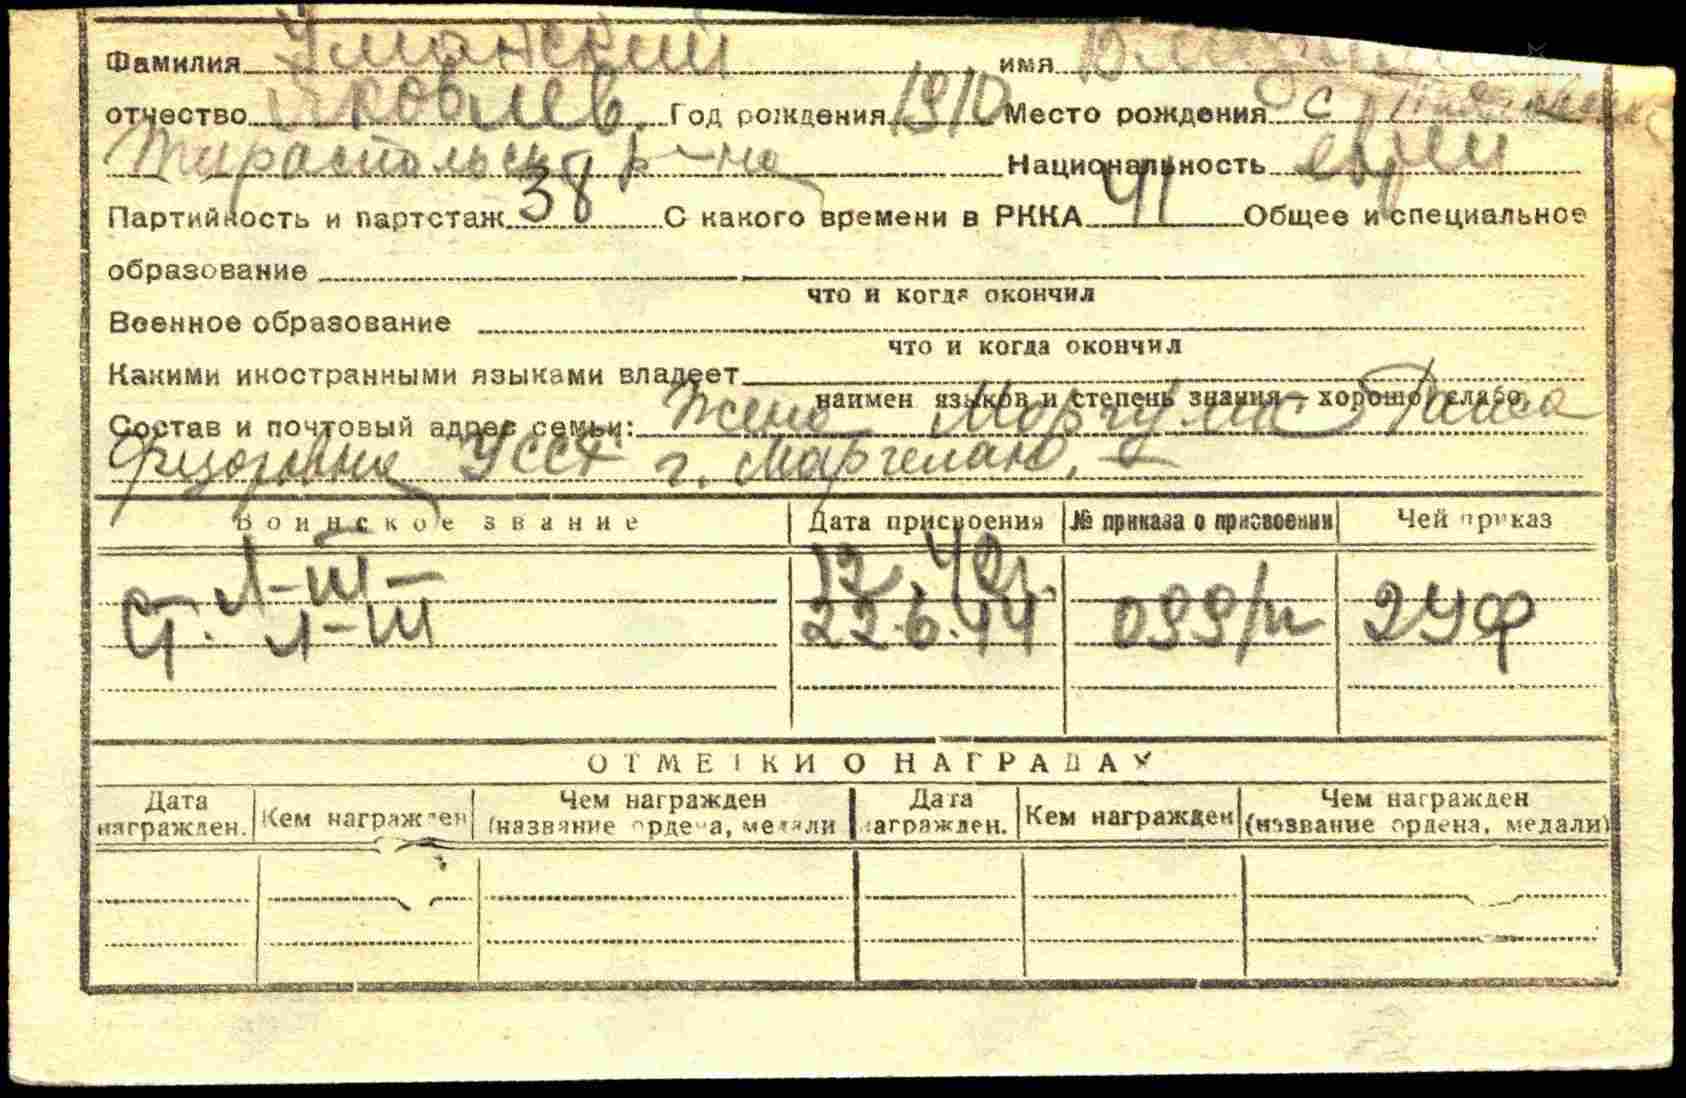 Фамилия Уманский имя
отчество Яковлев. Год рождения 1910 Место рождения с.
Тираспольск р-на Национальность еврей
Партийность и партстаж 38 С какого времени в РККА 41 Общее и специальное
образование
что и когда окончил
Военное образование
что и когда окончил
Какими иностранными языками владеет
наимен языков и степень знания – хорошо, слабо
Состав и почтовый адрес семьи: Жена Моргулис Раиса
УССР г. Маргелан,
Воинское звание Дата присвоения № приказа о присвоении Чей приказ
Л-Т 12.42г.
Ст. Л-Т 22.6.44 099/н 2УФ
ОТМЕТКИ О НАГРАДАХ
Дата награжден. Кем награжден Чем награжден (название ордена, медали Дата награжден. Кем награжден Чем награжден (название ордена, медали)